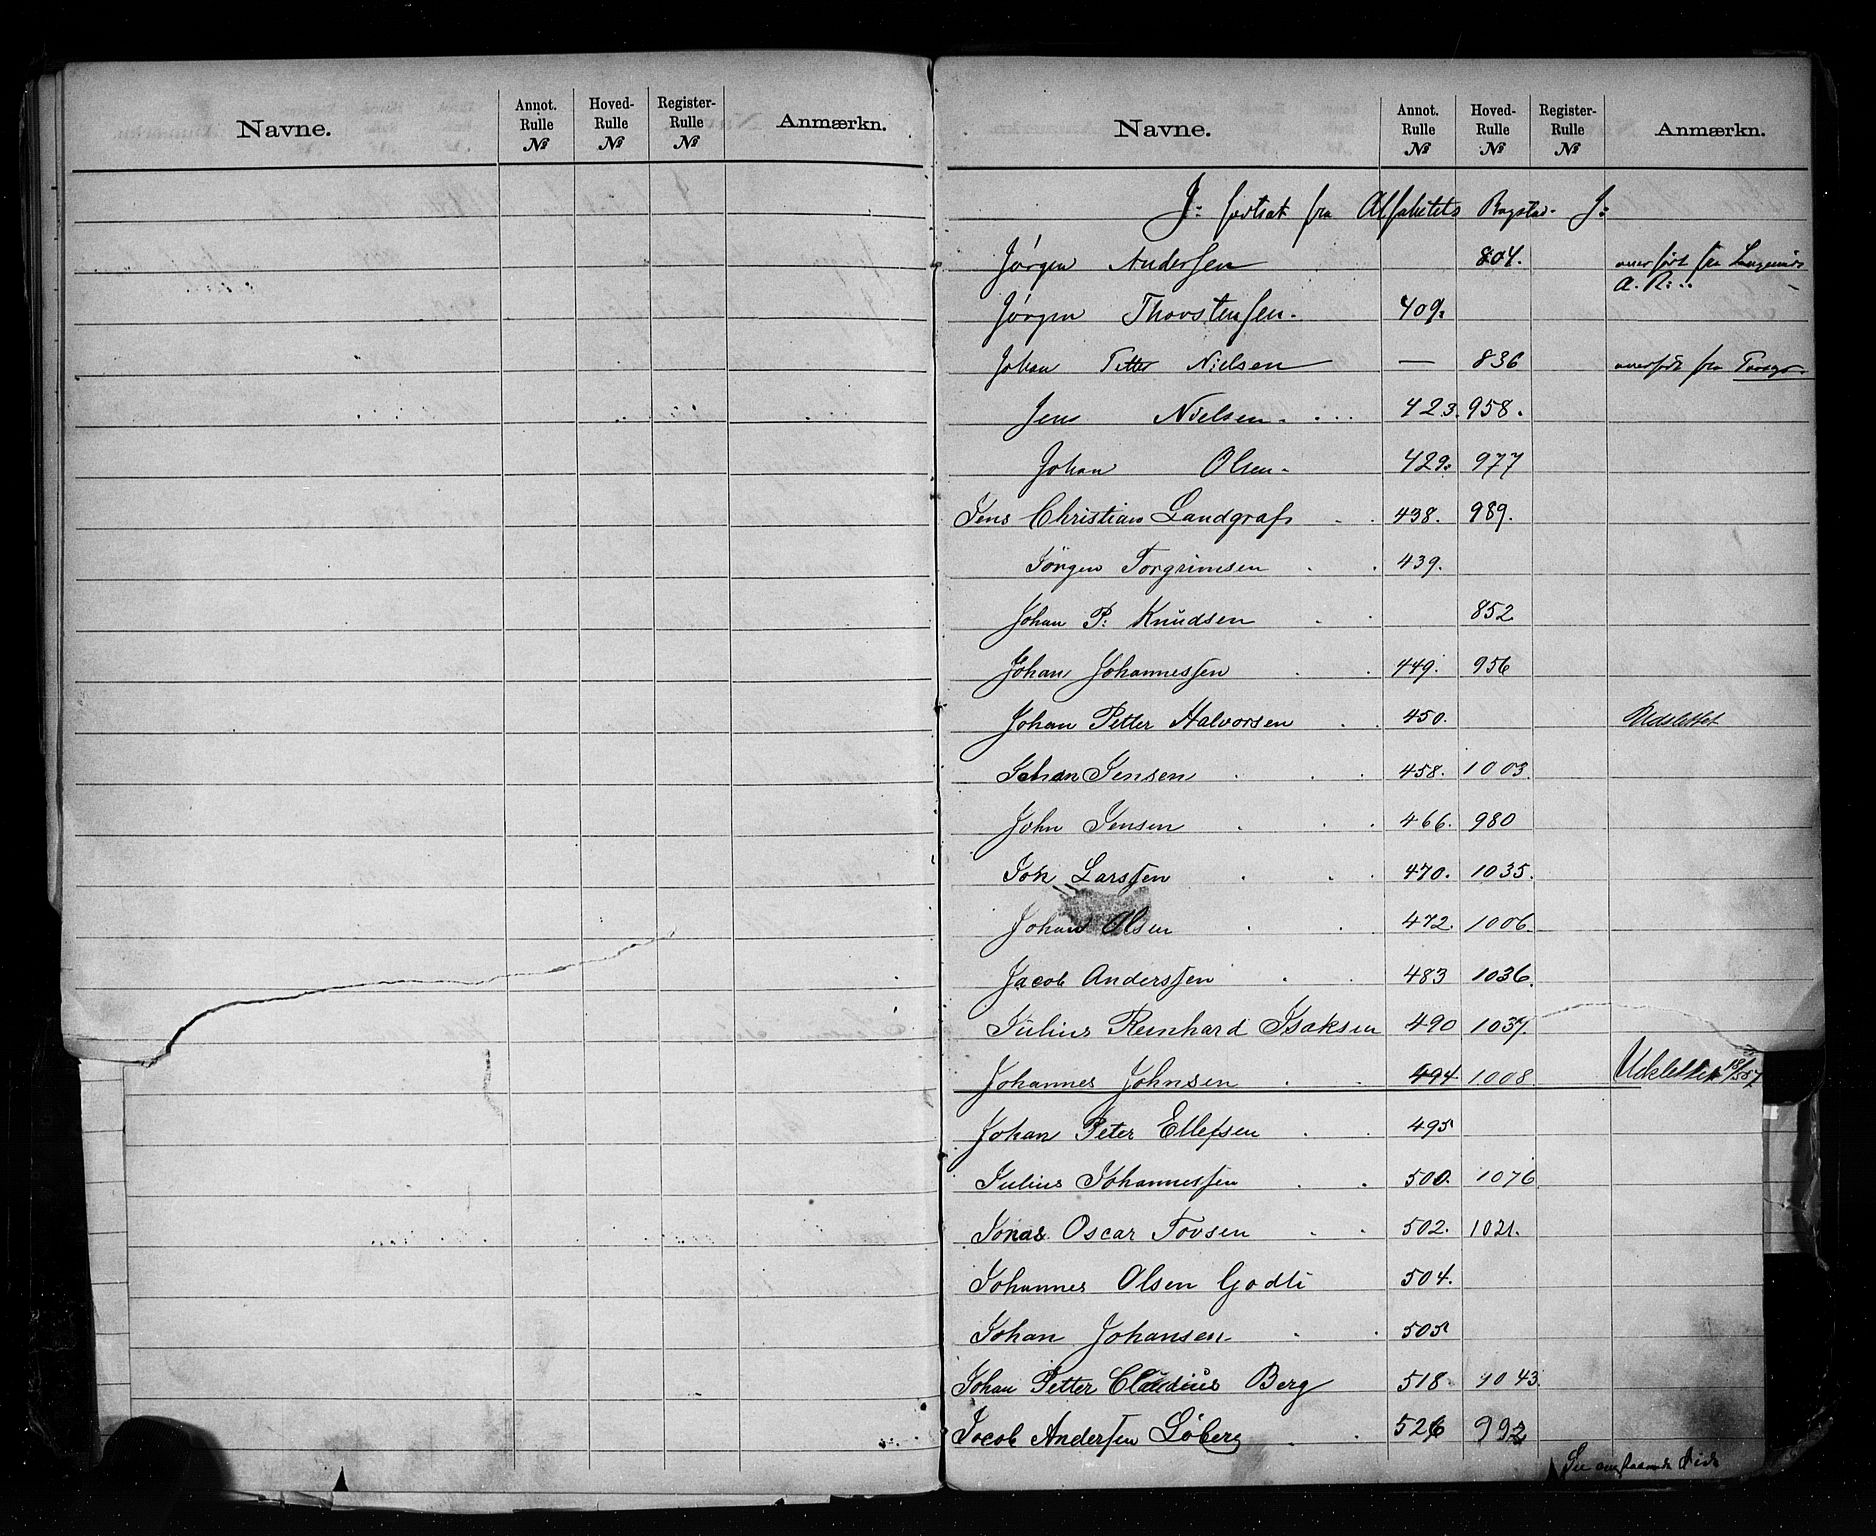 Navne. Annot. Rulle № Hoved- Rulle № Register- Rulle № Anmærkn.
Navne. Annot. Rulle № Hoved- Rulle № Register- Rulle № Anmærkn.
J: fortsat fra Alfabetets Bogstav J:
Jørgen Andersen 804. overført fra
A. R:
Jørgen Thorstensen. 409.
Johan Petter Nielsen — 836 overført fra
Jens Nielsen. 423. 958.
Johan Olsen. 429. 977
Jens Christian Landgraf 438. 989.
Jörgen Torgrimsen 439.
Johan P. Knudsen 852
Johan Johannessen 449. 956
Johan Petter Halvorsen 450. Udslettet
Johan Jensen 458. 1003.
John Jensen 466. 980
Joh Larssen 470. 1035.
Johan Olsen 472. 1006.
Jacob Anderssen 483 1036.
Julius Reinhard Isaksen 490 1037.
Johannes Johnsen 494 1008. Udslettet
Johan Peter Ellefsen 495
Julius Johannessen 500. 1076.
Jonas Oscar Tovsen 502. 1021.
Johannes Olsen Godli 504.
Johan Johansen 505
Johan Petter Claudius Berg 518 1043.
Jocob Andersen Löberg 526 992
See omstaaende Side